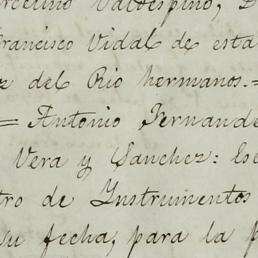 rcelino Valdespino, D
Francisco Vidal de esta
z del Rio hermanos.=
= Antonio Fernande
Vera y Sanchez: Es
tro de Instrumentos
su fecha, para la p